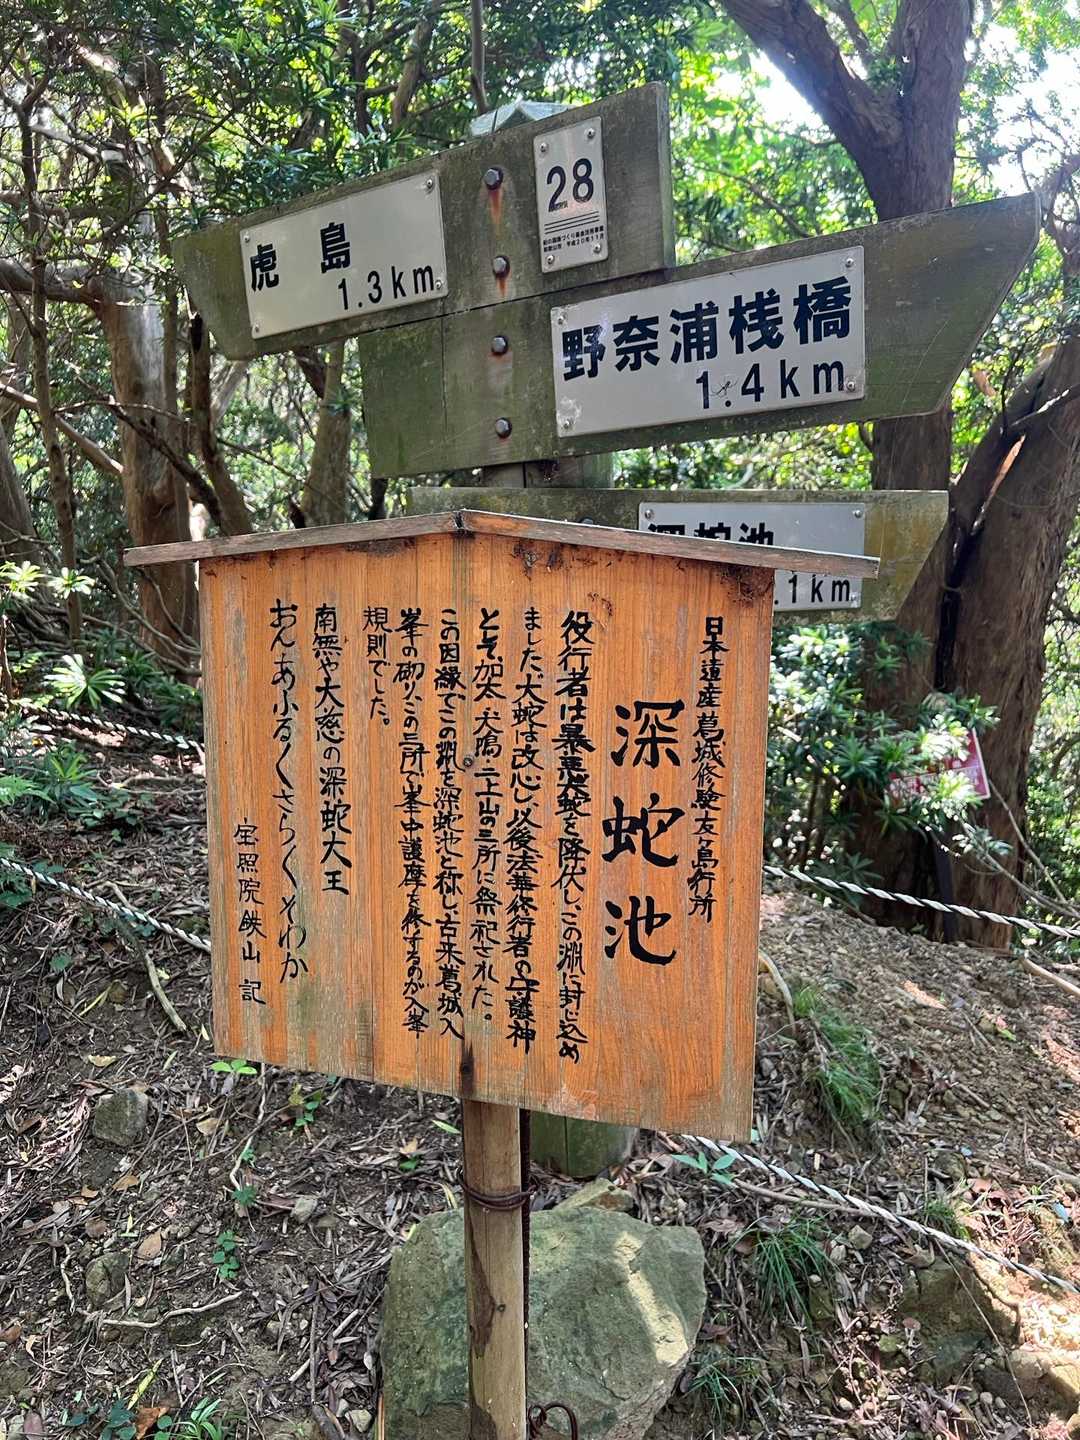 虎島
1.3km
28
野奈浦桟橋
1.4km
深蛇池
.1km
日本遺産葛城修験友ヶ島行所
深蛇池
役行者は暴悪大蛇を降伏し、この渕に封じ込め
ました。大蛇は改心し、以後、法華修行者の守護神
とそ、加太・犬鳴・二上山の三所に祭祀された。
この因縁でこの渕を深蛇池と称し、古来葛城入
峯の砌り、この三所で峯中護摩を修するのが入峯
規則でした。
南無や大慈の深蛇大王
おん あふるく さらく そわか
宝照院鉄山 記